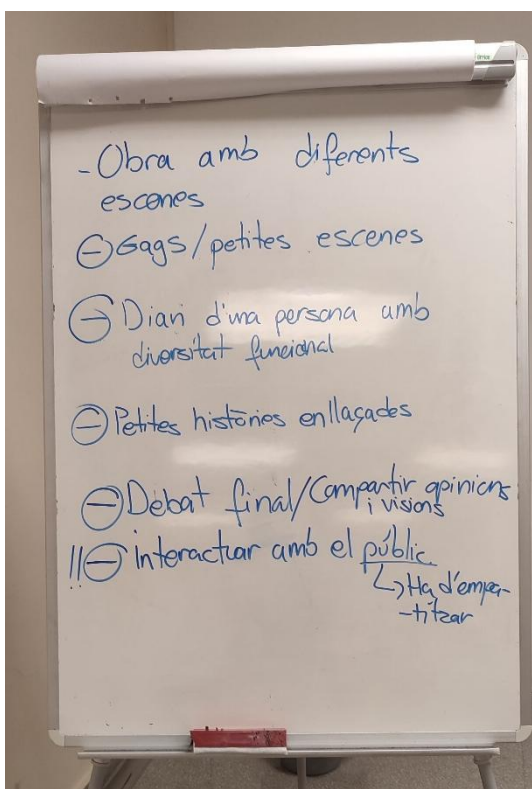 - Obra amb diferents
escenes
⊖ Gags/petites escenes
⊖ Diari d'una persona amb
diversitat funcional
⊖ Petites històries enllaçades
⊖ Debat final/Compartir opinions
i visions
!!⊖ interactuar amb el públic
↳ Ha d'empa-
-titzar